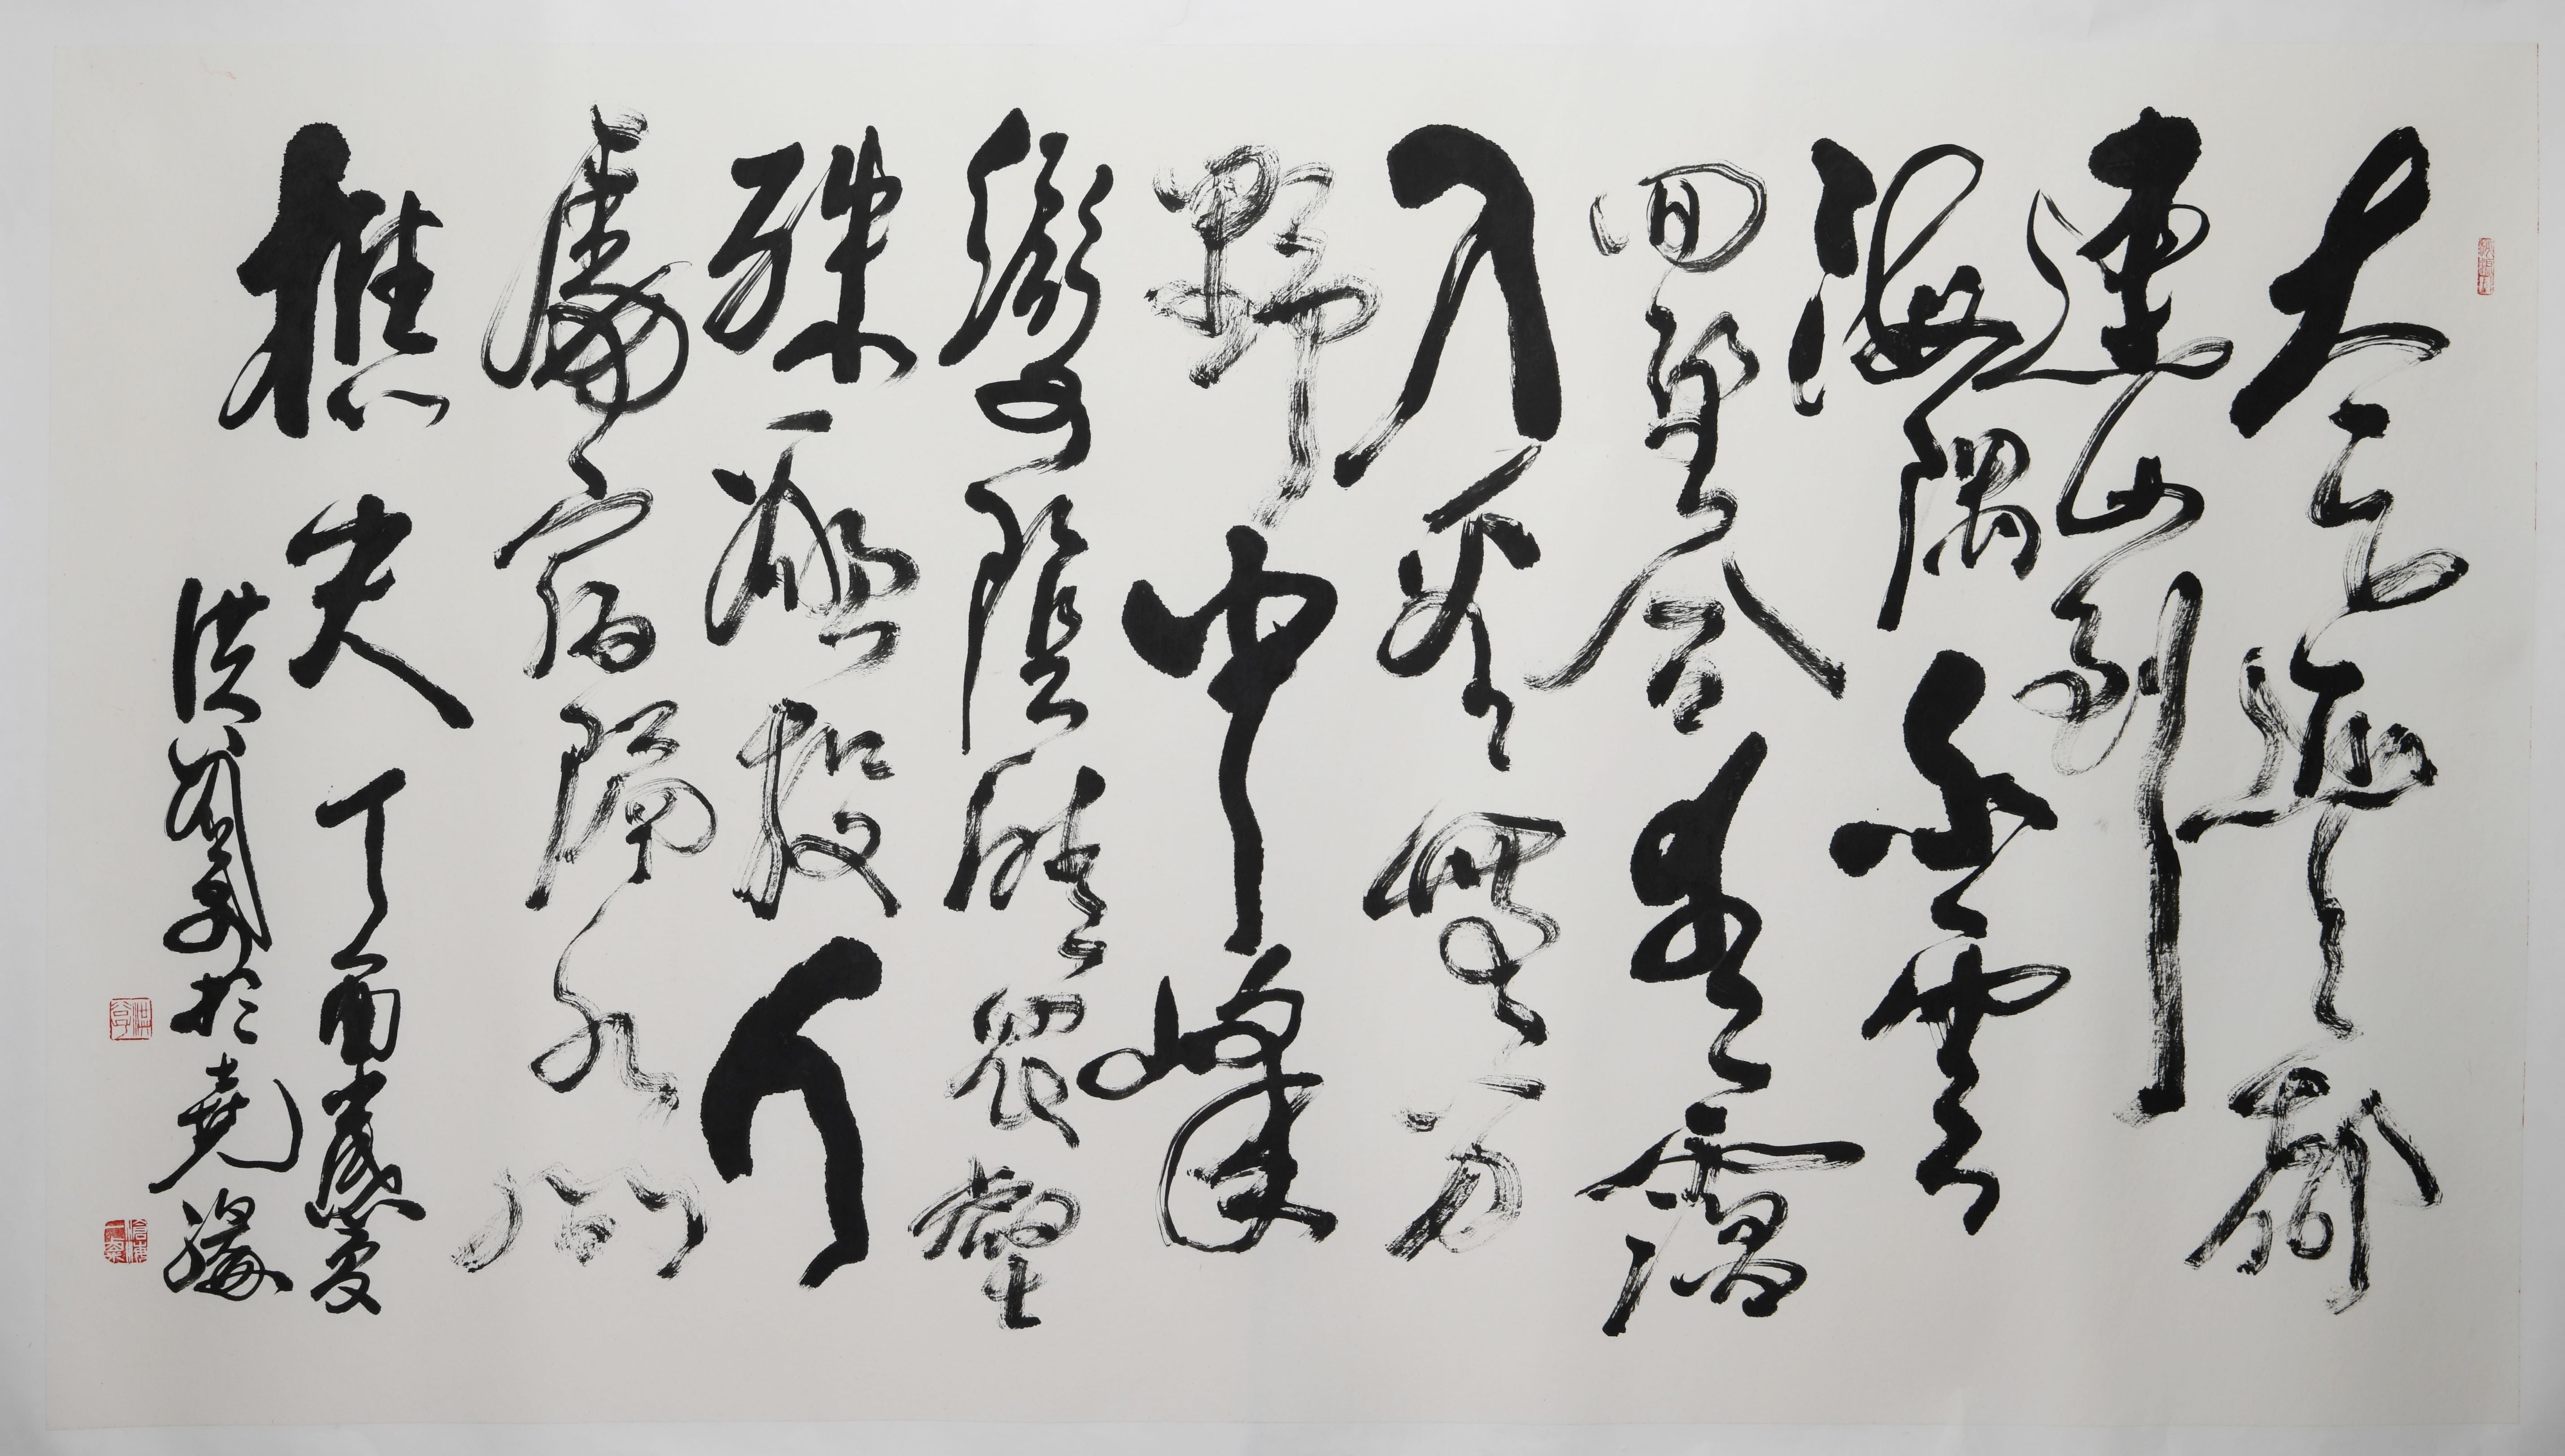 太乙近天都
連山到
海隅白雲
回望合青靄
入看無分
野中峰
變陰晴眾壑
殊欲投人
處宿隔水問
樵夫 丁酉歲夏
洪 於堯